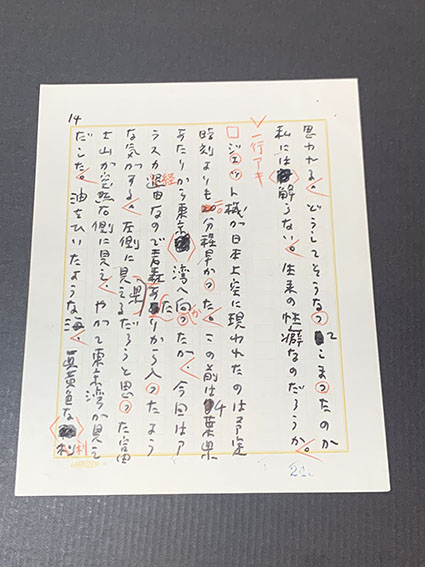 14
思われる。どうしてそうなってしまったのか
私には解らない。生来の性癖なのだろうか。
一行アキ
ジェット機が日本上空に現われたのは予定
時刻よりも分程早かった。この前は千葉県
あたりから東京湾へ向ったが、今回はア
ラスカ経由なので青森県あたりから入ったよう
な気がする。左側に見えるだろうと思った富
士山が突然右側に見え、やがて東京湾が見え
だした。油をひいたような海。真黄色な
利